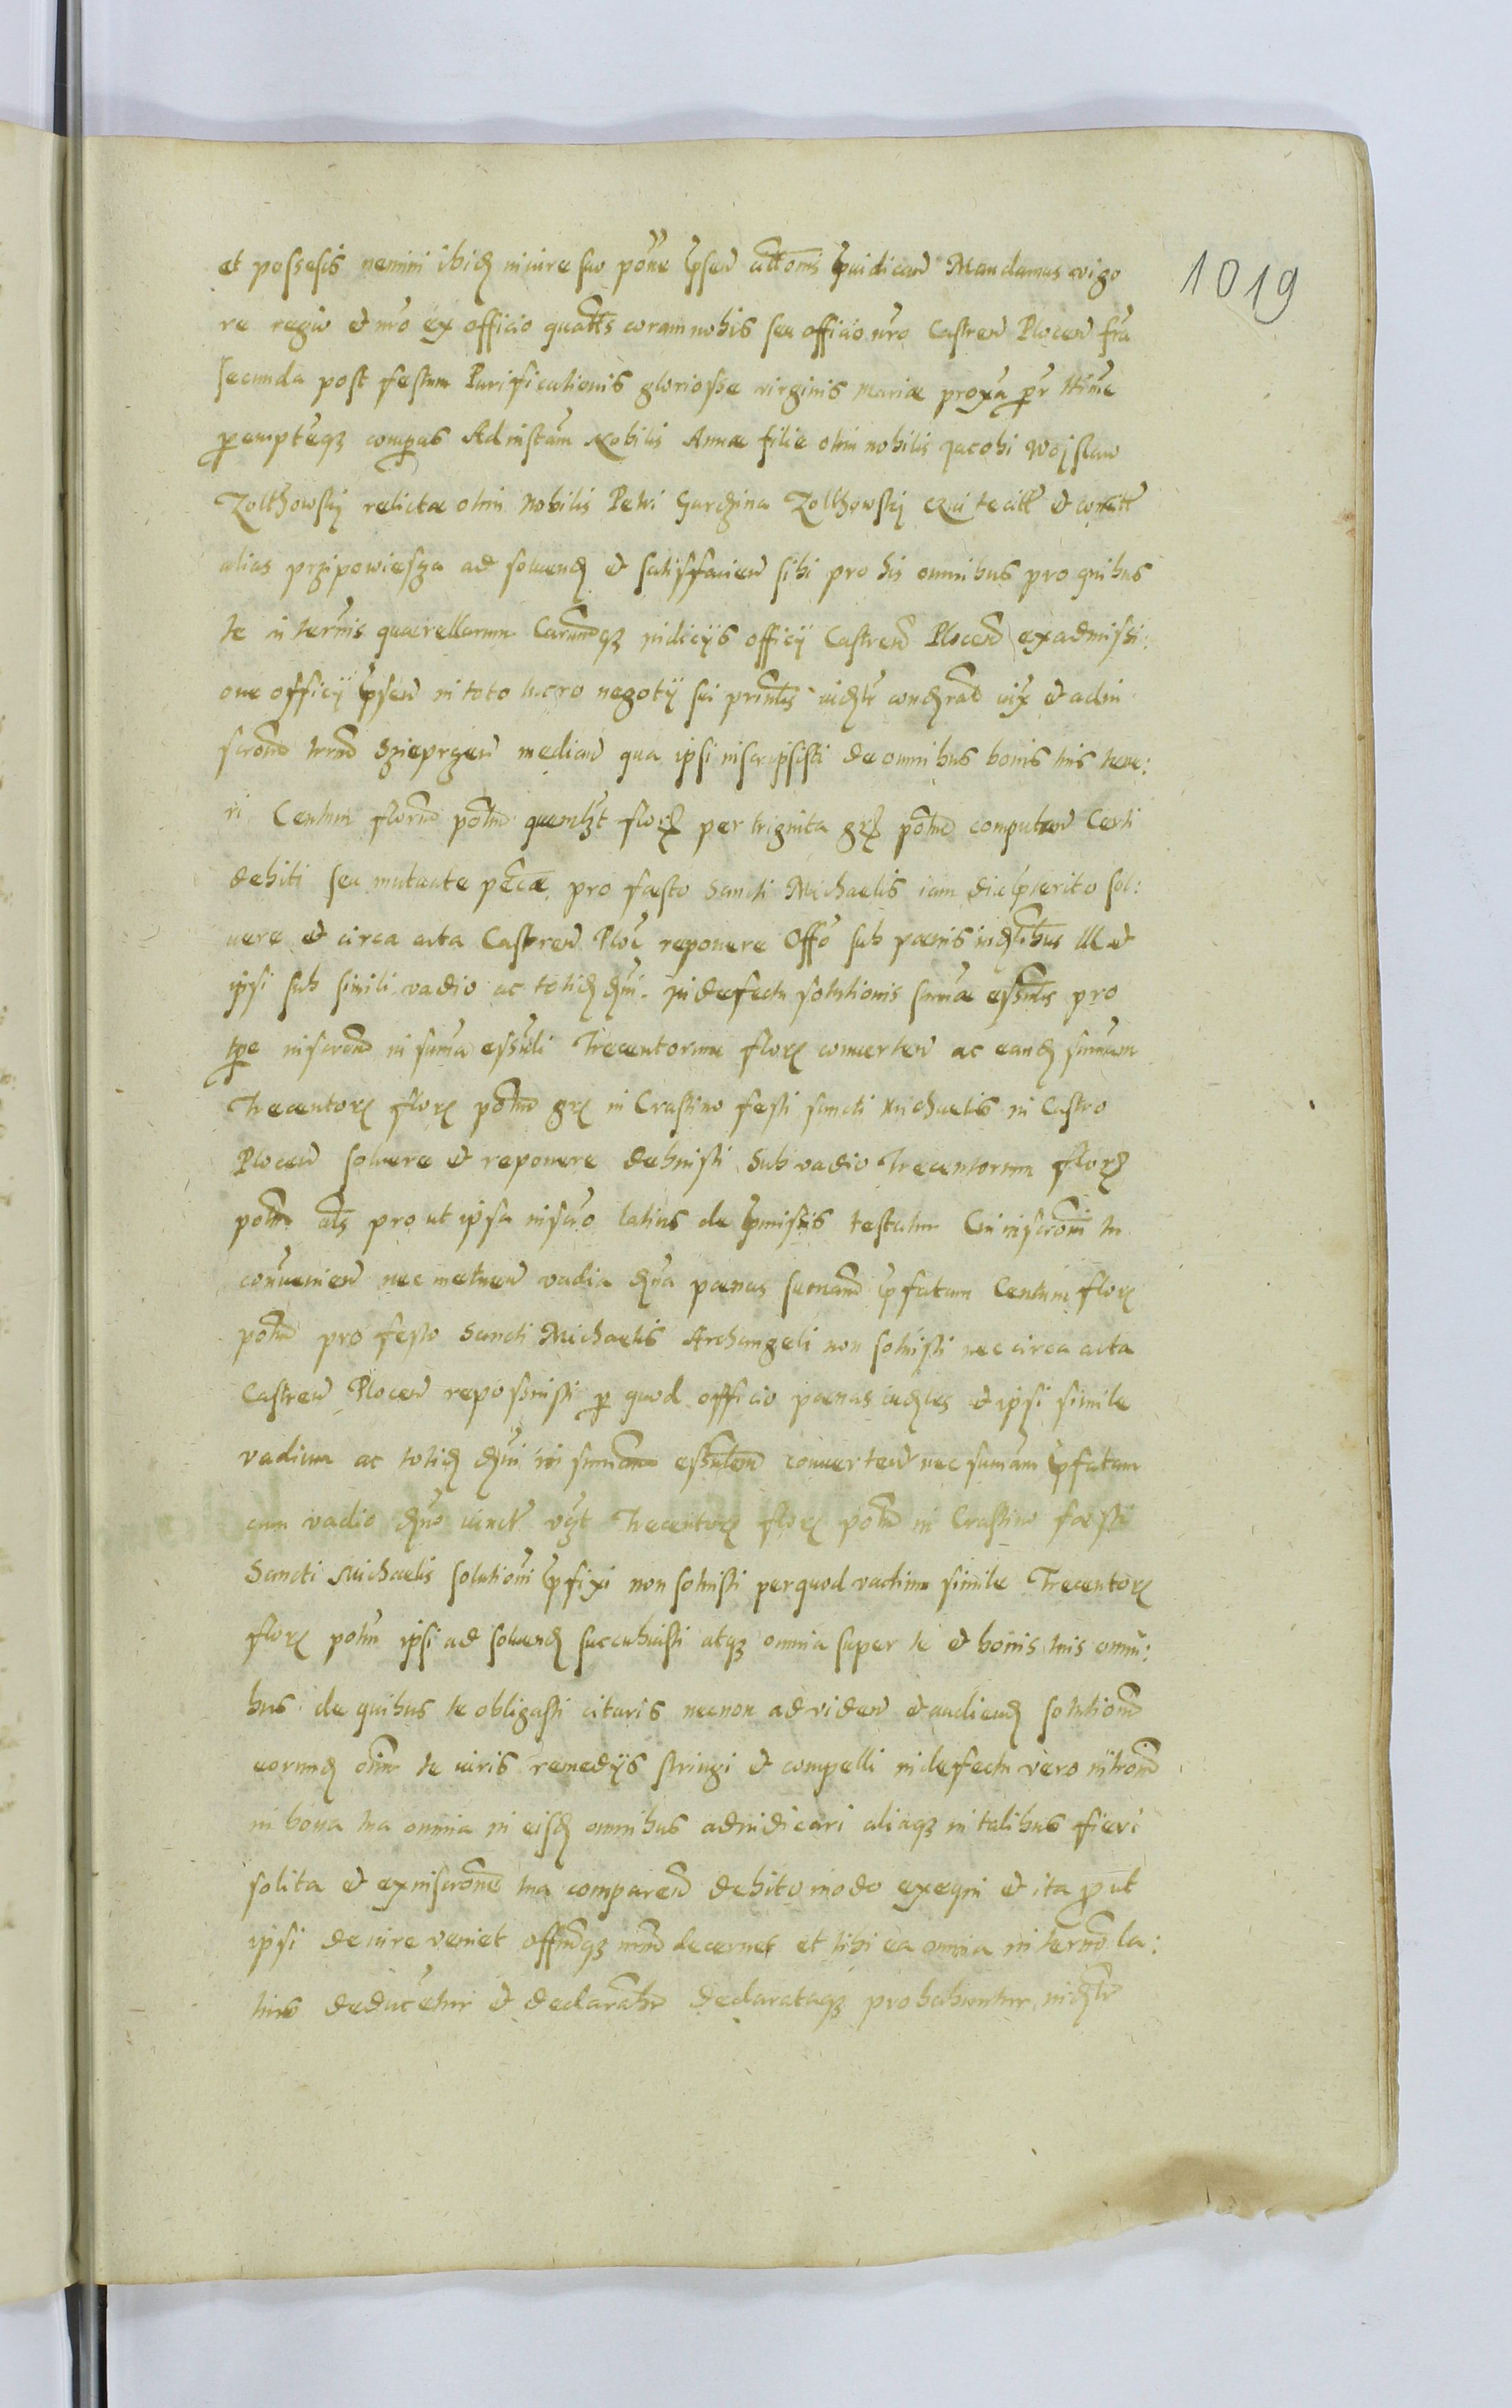 1019
et possessis nemini ibidē in iure suo pōne p̄sen cittōnis p̄iudican̄ Mandamus vigo
re regio et nr̄o ex officio quat̄s coram nobis seu officio nr̄o Castren̄ Plocen̄ fr̄a
secunda post festum Purificationis gloriosse virginis mariæ prox̄a
p̄empt̄eqz compas Ad instām Nobilis Annæ filie olim nobilis Jacobi Wojslaw
Zolthowskj relictæ olim Nobilis Petri Gurczina Zolthowskj te citt et
alias przipowiesza ad soluendz et satisfacien̄ sibi pro his omnibus pro quibus
te in ter̄nis quærellarum Earundqz iudicijs officij Castren̄ Plocen̄ ex admissi:
one officij p̄sen̄ in toto lucro negotij sui prin̄lis vidzlt et adin
median̄ qua ipsi inscripsisti de omnibus bonis tuis tene:
ri Centum floren̄ pōln̄ quemlzt florz per triginta grz pōln̄ computan̄ Certi
debiti seu mutuate pēcæ pro fæsto Sancti Michaelis iam die p̄terito sol:
uere et circa acta Castren̄ Ploc̄ reponere Off̄o sub pænis iudzlibus Ill et
ipsi sub simili vadio ac totidz in defectu solutionis sum̄æ pro
in sum̄a Trecentorum florz conuerten̄ ac eandz sum̄am
Trecentorz florz pōln̄ grz in Crastino festi sancti Michaelis in Castro
Plocen̄ soluere et reponere debuisti sub vadio Trecentorum florz
pōln̄ al̄s pro ut ipsa inscr̄o latius de p̄missis testatur Cui inscrōni tu
conuenien̄ nec metuen̄ vadia pænas p̄fatam Centum florz
pōln̄ pro festo Sancti Michaelis Archangeli non soluisti nec circa acta
Castren̄ Plocen̄ reposuisti p quod officio pænas iudzles et ipsi simile
vadium ac totidz in conuerten̄ nec sum̄am p̄fatam
cum vadio vzt Trecentorz florz pōln̄ in Crastino fæsti
Sancti Michaelis solutioni p̄fixi non soluisti per quod vadium simile Trecentorz
florz pōln̄ ipsi ad soluendz succubuisti atqz omnia super te et bonis tuis omni:
bus de quibus te obligasti citaris necnon ad viden̄ et audiendz solutionē
eorundz te iuris remedijs stringi et compelli in defectu vero
in bona tua omnia in eisdz omnibus adiudicari aliaqz in talibus fieri
solita et ex inscrōne tua comparen̄ debito modo exeqni et ita p ut
ipsi de iure veniet decernet et tibi ea omnia in ter̄no la:
tius deducentur et declaratqz probabuntur